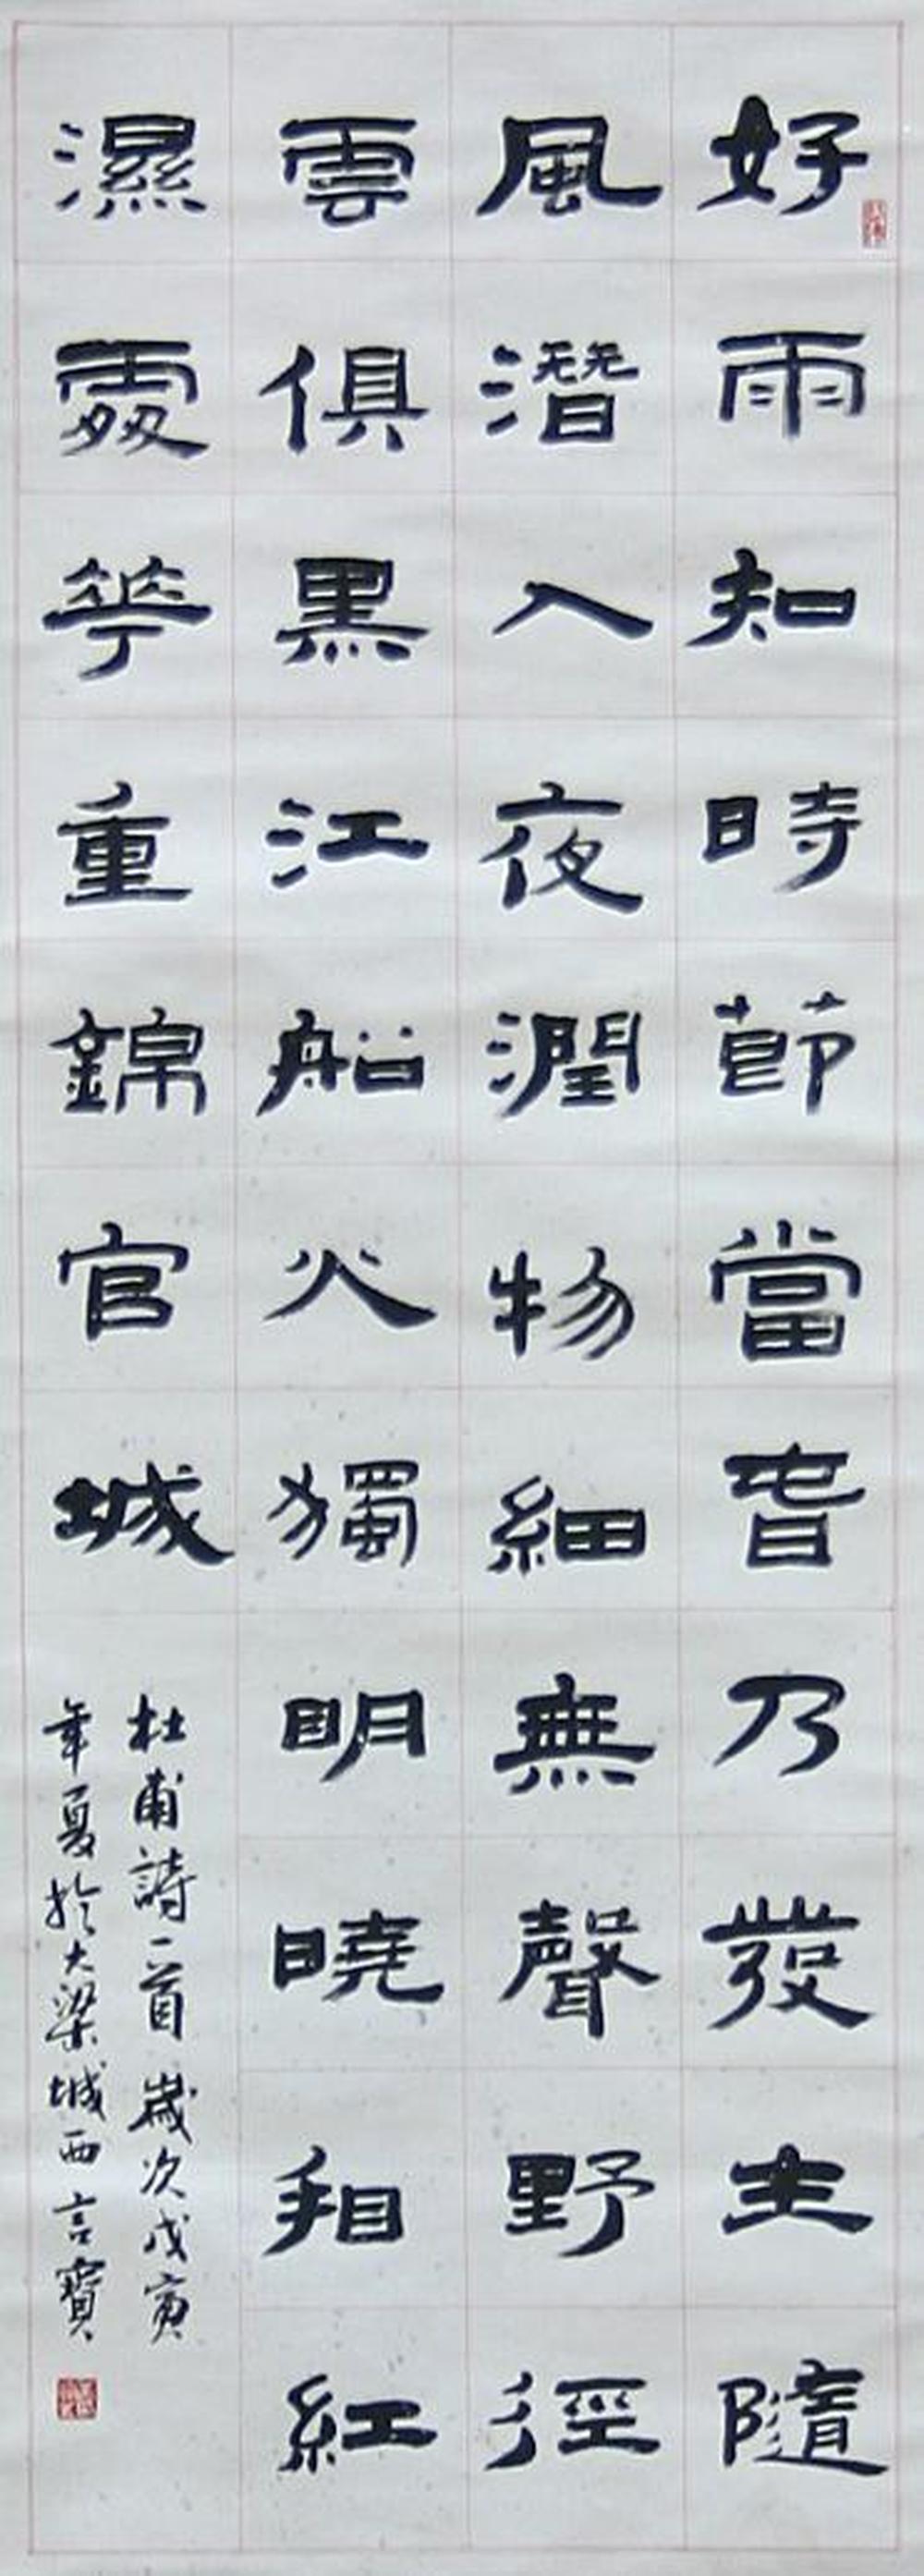 好雨知時節當旾乃發生隨
風潛入夜潤物細無聲野徑
雲俱黑江船火獨明曉看紅
濕處華重錦官城
杜甫詩一首歲次戊寅
年夏於大梁城西言寶